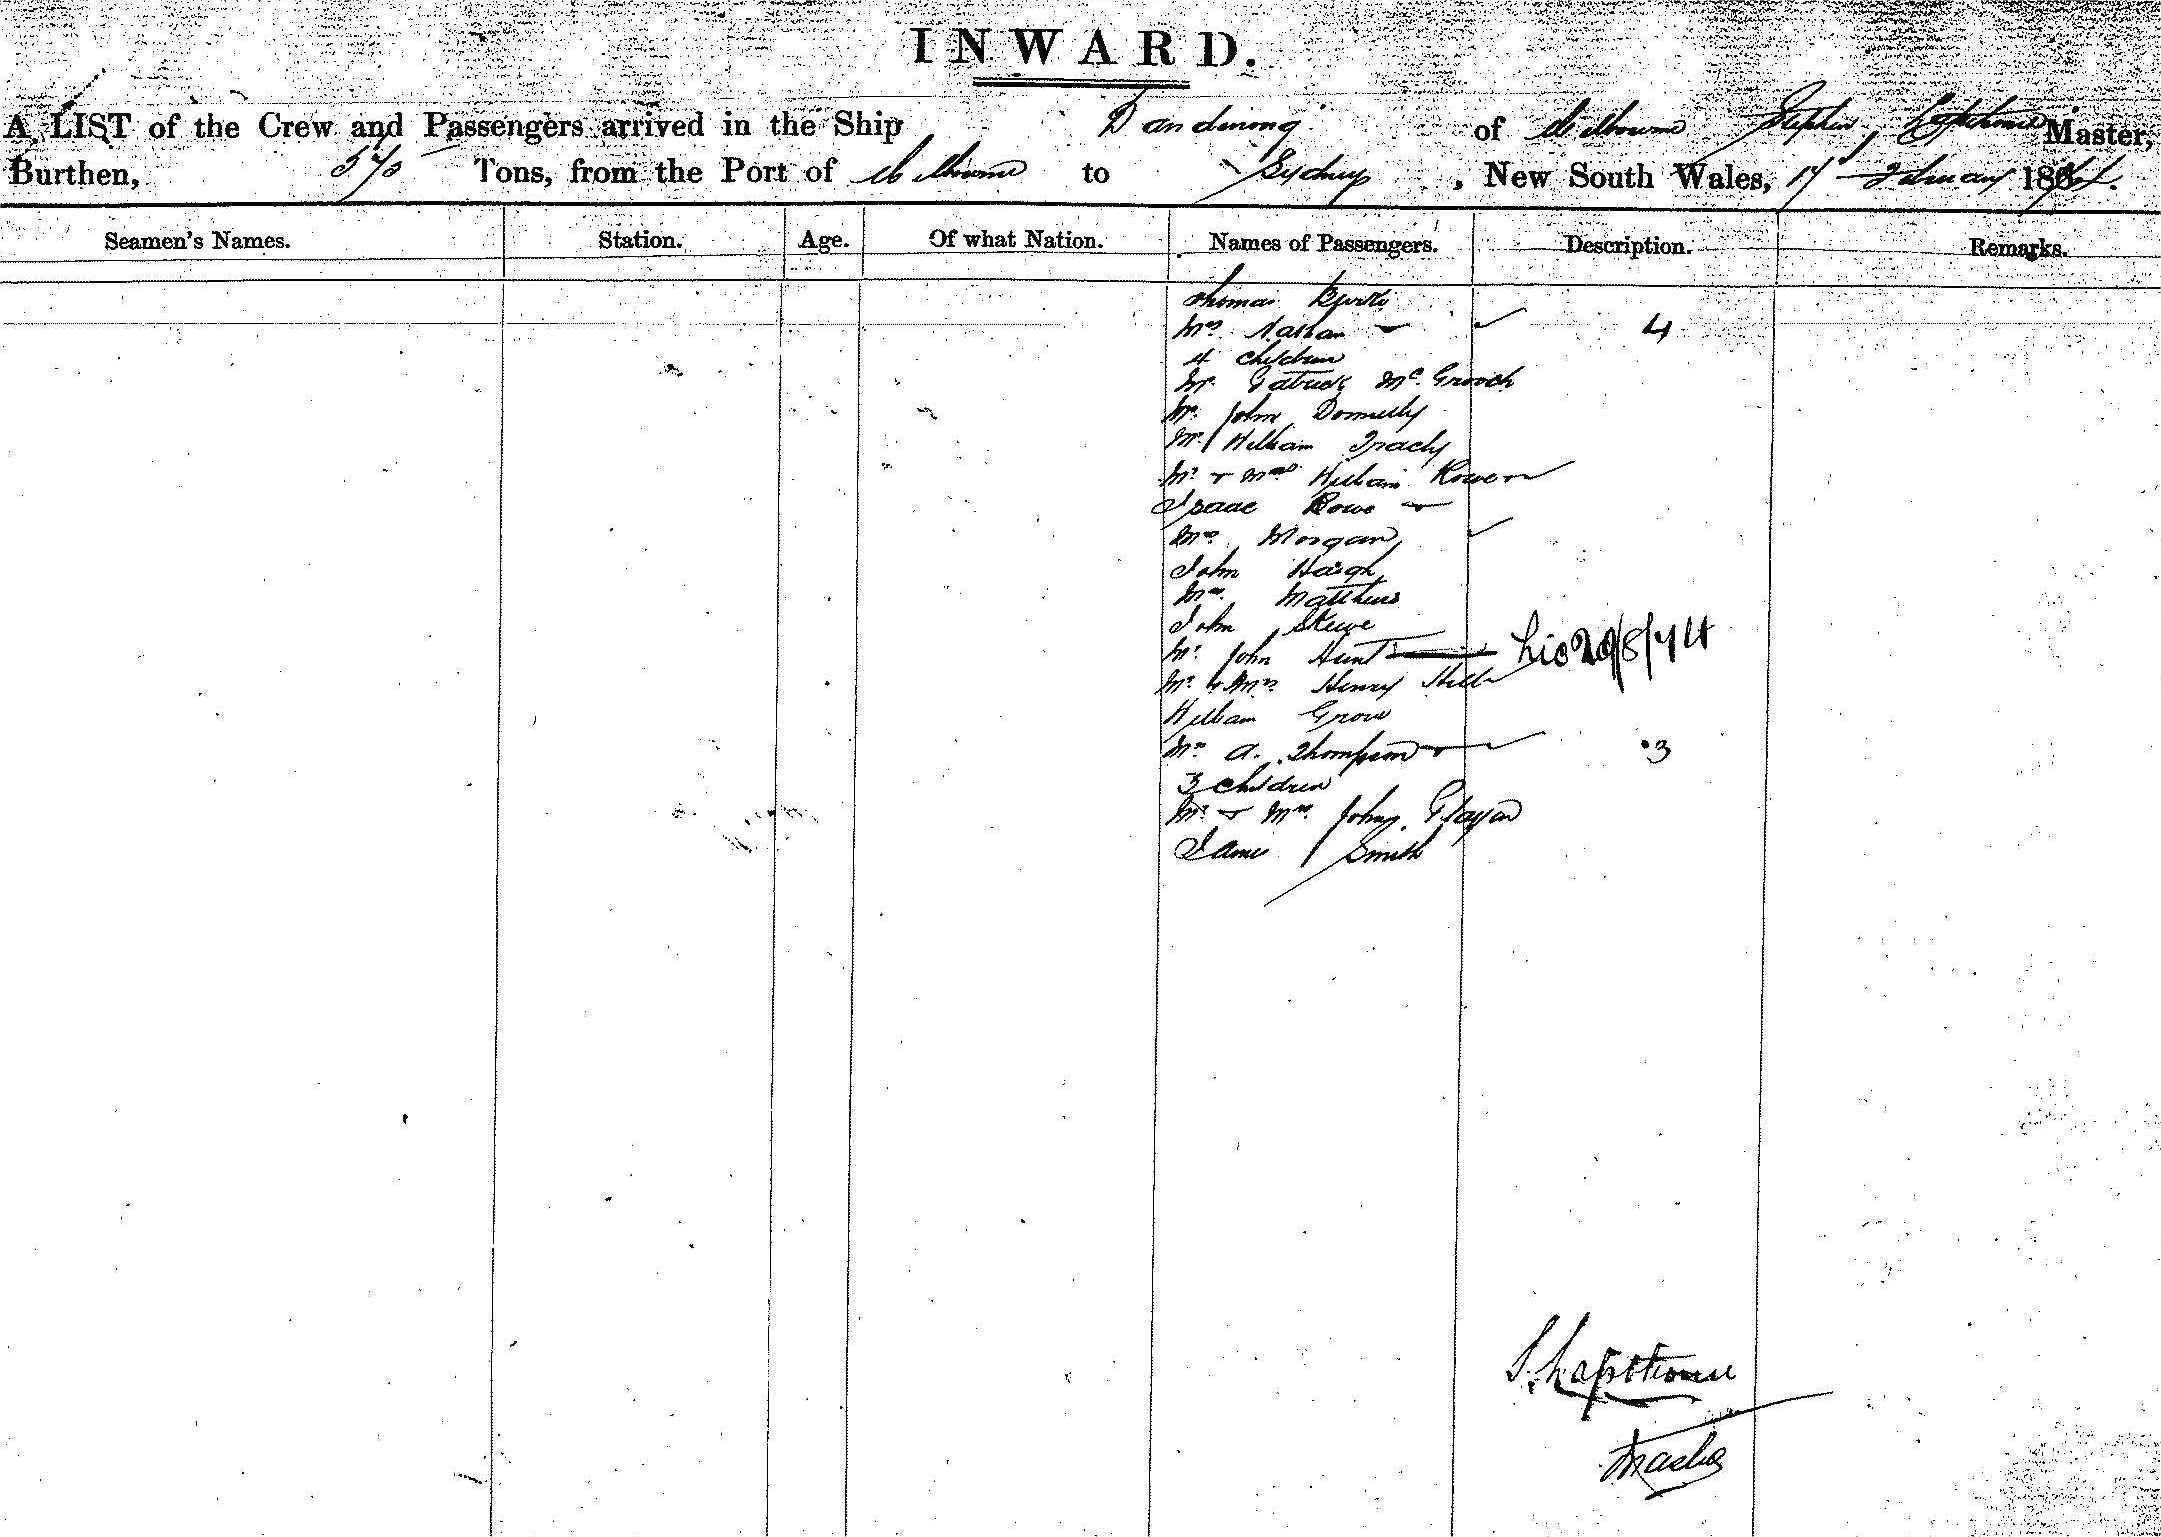 INWARD.
A LIST of the Crew and Passengers arrived in the Ship Dandenong of Melbourne Stephen Lapthorne Master,
Burthen, Tons, from the Port of Melbourne to Sydney, New South Wales, 17 February 18
Seamen's Names. Station. Age. Of what Nation. Names of Passengers. Description. Remarks.
Thomas
Mrs Nathan 4
4 children
Mr Patrick Mc
Mr John Donnelly
Mr William Tracey
Mr + Mrs William Rowe
Isaac Rowe
Mrs Morgan
John Haigh
Mrs Matthews
John
Mr John Hunt
Lic 20/8/74
Mr + Mrs Henry Hill
William Grow
Mrs A. Thompson 3
3 children
Mr + Mrs John
James Smith
S. Lapthorne
Master